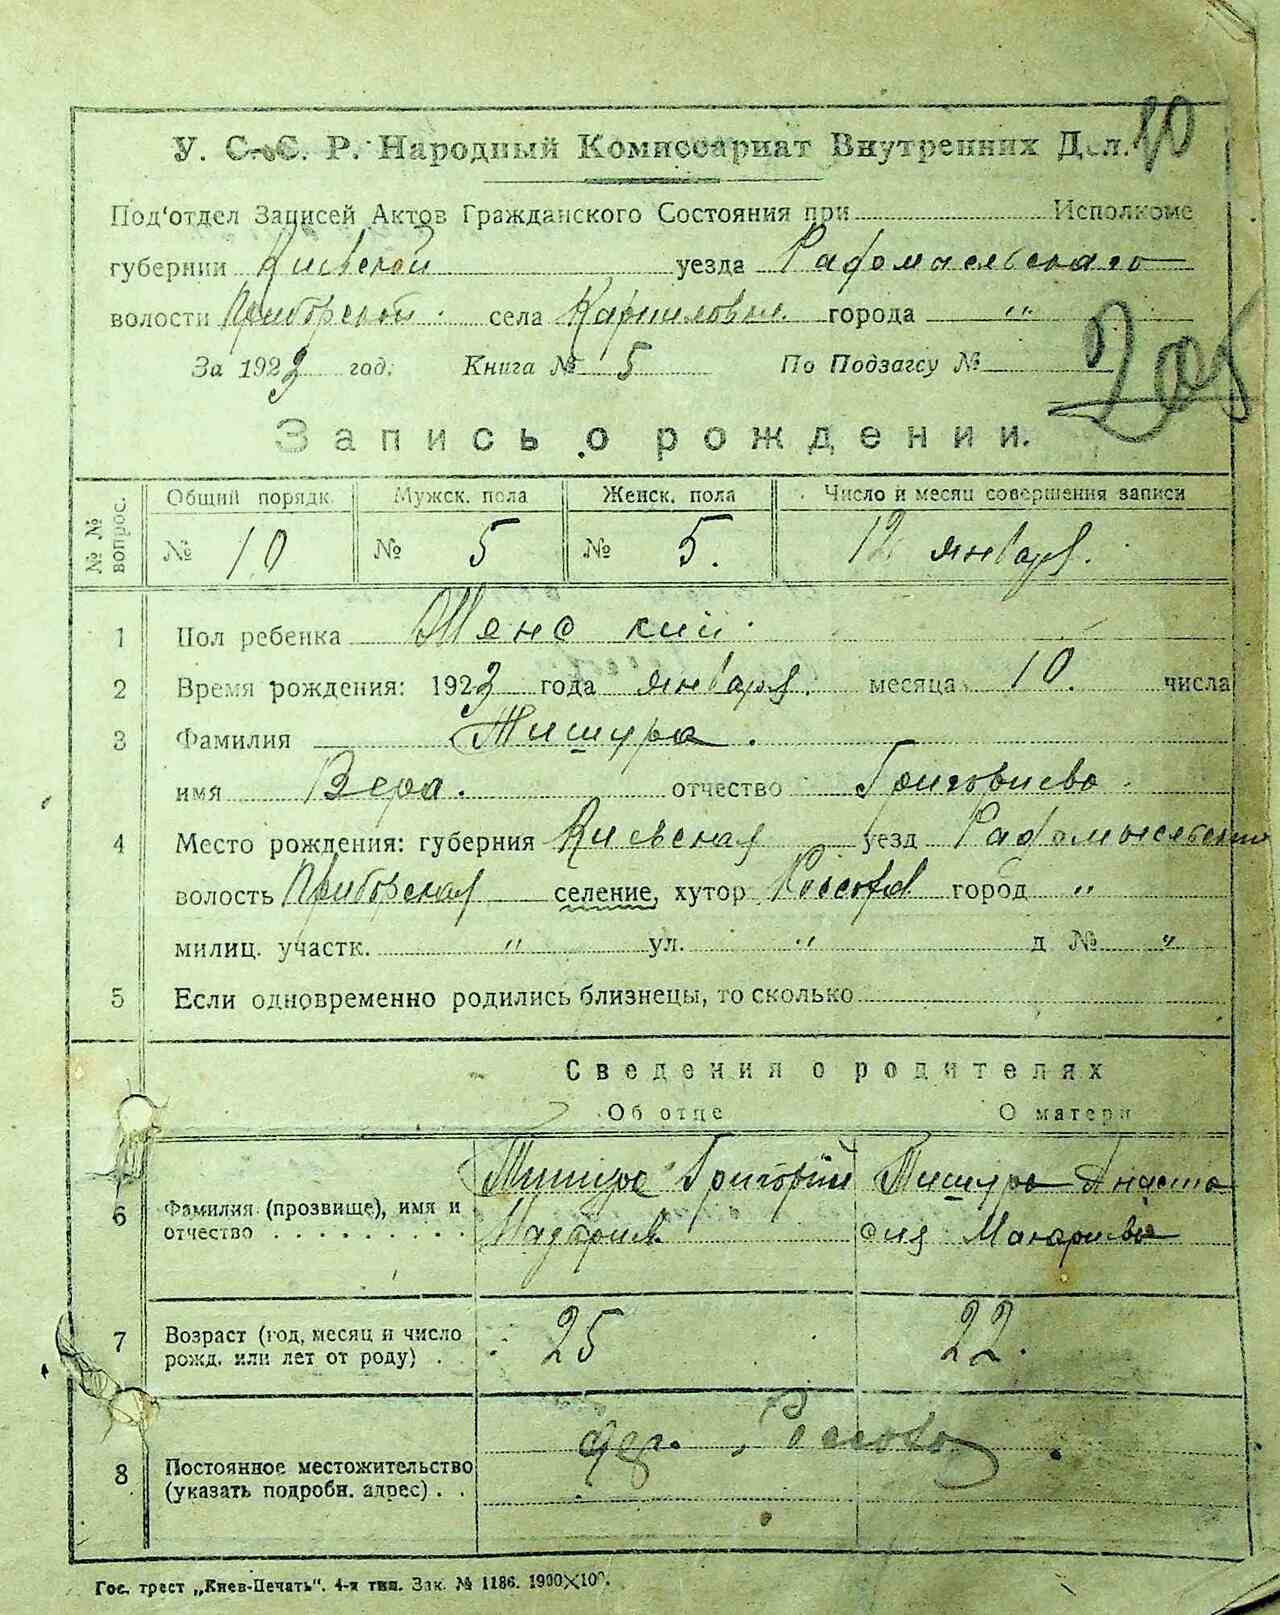 У. С. С. Р. Народный Комиссариат Внутренних Дел. 10
Под'отдел Записей Актов Гражданского Состояния при Исполкоме
губернии Киевской уезда Радомысльского
волости Приборской села Карпиловки города "
За 1923 год. Книга № 5 По Подзагсу №
Запись о рождении.
№ № вопрос. Общий порядк. Мужск. пола Женск. пола Число и месяц совершения записи
№ 10 № 5 № 5. 12 января.
1 Пол ребенка Женский
2 Время рождения: 1923 года января месяца 10. числа
3 Фамилия Тишура.
имя Вера. отчество Григориева
4 Место рождения: губерния Киевская уезд Радомысльский
волость Приборская селение, хутор город "
милиц. участк. " ул. " д № "
5 Если одновременно родились близнецы, то сколько
Сведения о родителях
Об отце О матери
6 Фамилия (прозвище), имя и отчество Тишура Григорий Тишура Анаста
сия Макариева
7 Возраст (год, месяц и число рожд. или лет от роду) 25 22.
8 Постоянное местожительство (указать подробн. адрес) дер.
Гос. трест „Киев-Печать". 4-я тип. Зак. № 1186. 1900×100.